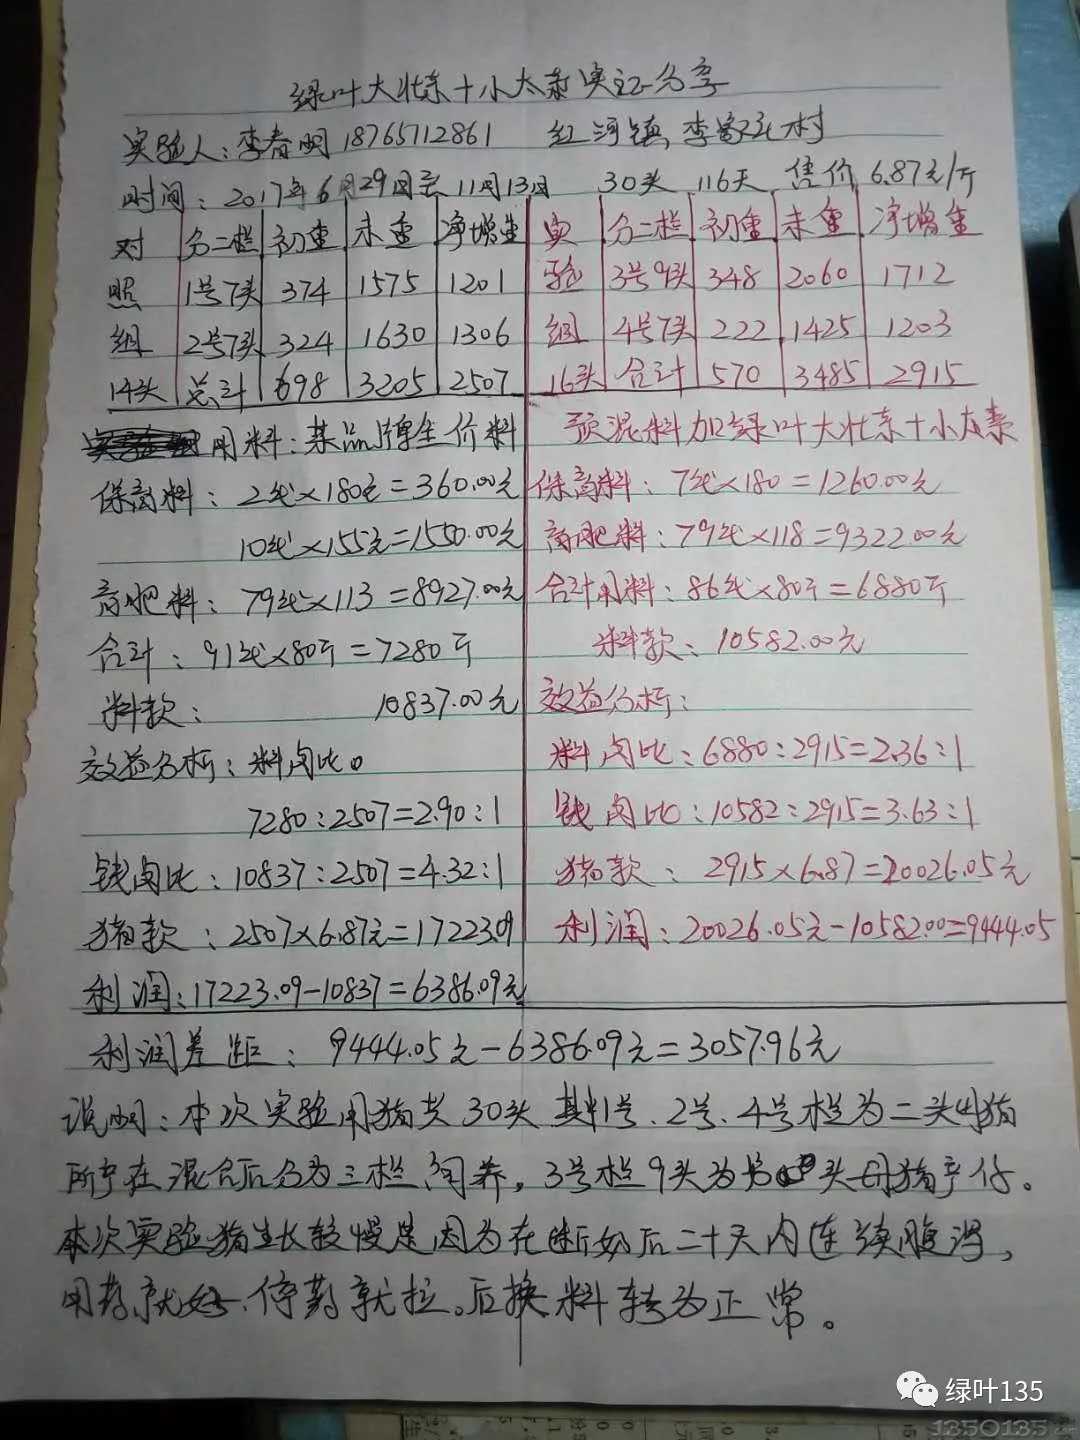 绿叶大壮素+小太素实证分享
实验人:李春明 18765712861 红河镇,李家庄村
时间:2017年6月29日至11月13日 30头 116天 售价 6.87元/斤
对 分二栏 初重 末重 净增重 实 分二栏 初重 末重 净增重
照 1号7头 374 1575 1201 验 3号9头 348 2060 1712
组 2号7头 324 1630 1306 组 4号7头 222 1425 1203
14头 总计 698 3205 2507 16头 合计 570 3485 2915
用料:某品牌全价料 预混料加绿叶大壮素+小太素
保育料:2代×180元=360.00元 保育料:7代×180=1260.00元
10代×155元=1550.00元 育肥料:79代×118=9322.00元
育肥料:79代×113=8927.00元 合计用料:86代×80斤=6880斤
合计:91代×80斤=7280斤 料款:10582.00元
料款: 10837.00元 效益分析:
效益分析:料肉比。 料肉比:6880:2915=2.36:1
7280:2507=2.90:1 钱肉比:10582:2915=3.63:1
钱肉比:10837:2507=4.32:1 猪款:2915×6.87=20026.05元
猪款:2507×6.87元=17223.09 利润:20026.05元-10582.00=9444.05
利润:17223.09-10837=6386.09元
利润差距:9444.05元-6386.09元=3057.96元
说明:本次实验用猪共30头 其中1号、2号、4号栏为二头母猪
所产在混合后分为三栏饲养,3号栏9头为 头母猪产仔。
本次实验猪生长较慢是因为在断奶后二十天内连续腹泻,
用药就好、停药就拉。后换料转为正常。
绿叶135
1350135